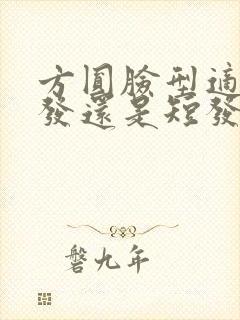 方圓臉型適
發還是短發
磐九年